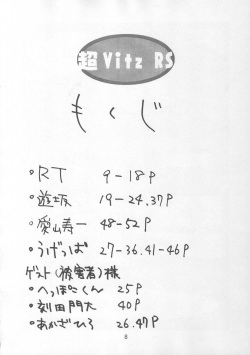 超 Vitz RS
もくじ
・RT 9-18P
・遊坂 19-24.37P
・愛山寿一 48-52P
・うげっぱ 27-36.41-46P
ゲスト(被害者)様
・へっぽこくん 25P
・刻田門大 40P
・あかざひろ 26.47P
8